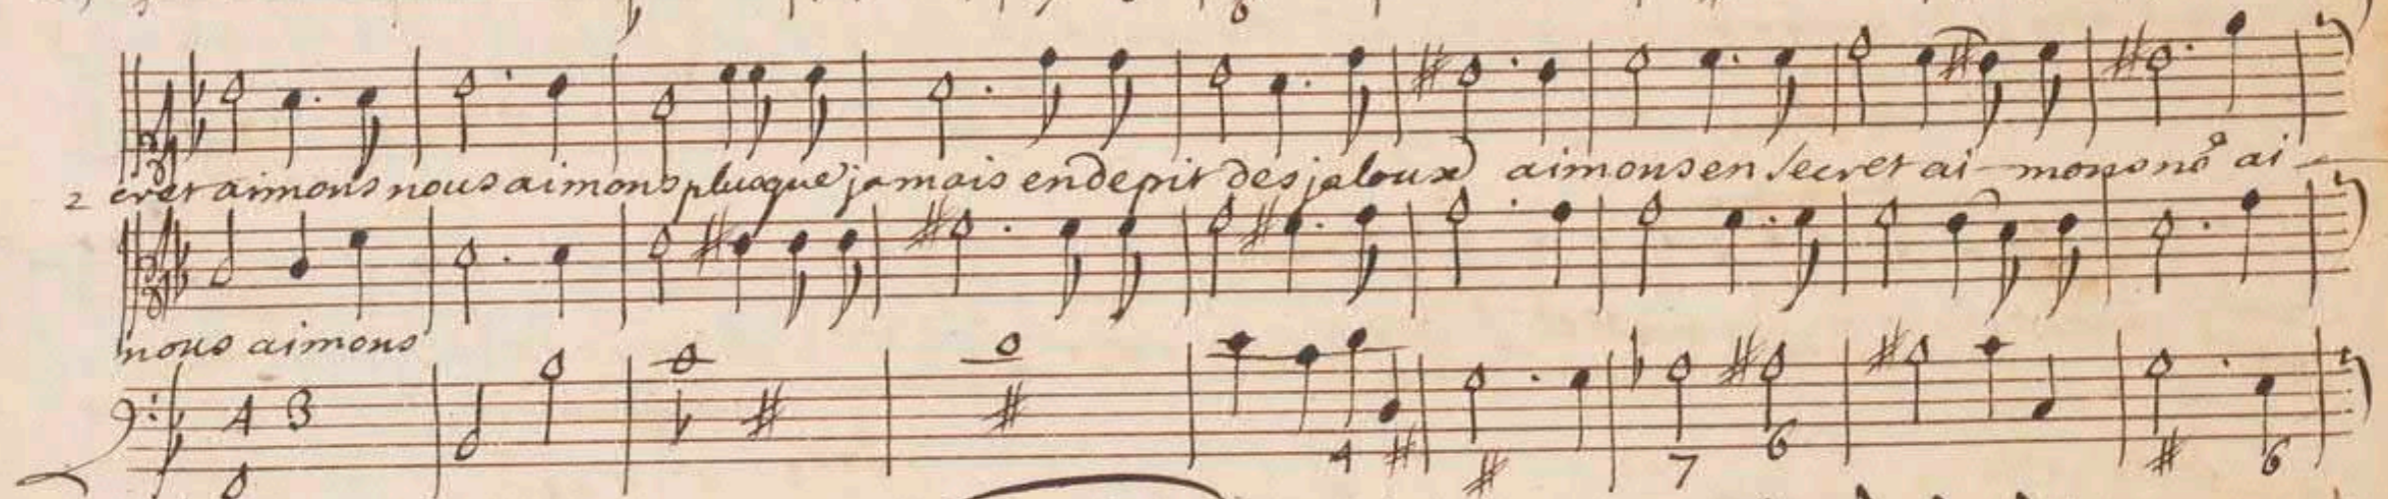 2 cret aimons nous aimons plusque jamais en depit des jaloux aimons en secret ai - mons no⁹ ai -
nous aimons
4 3
4 7 6 6